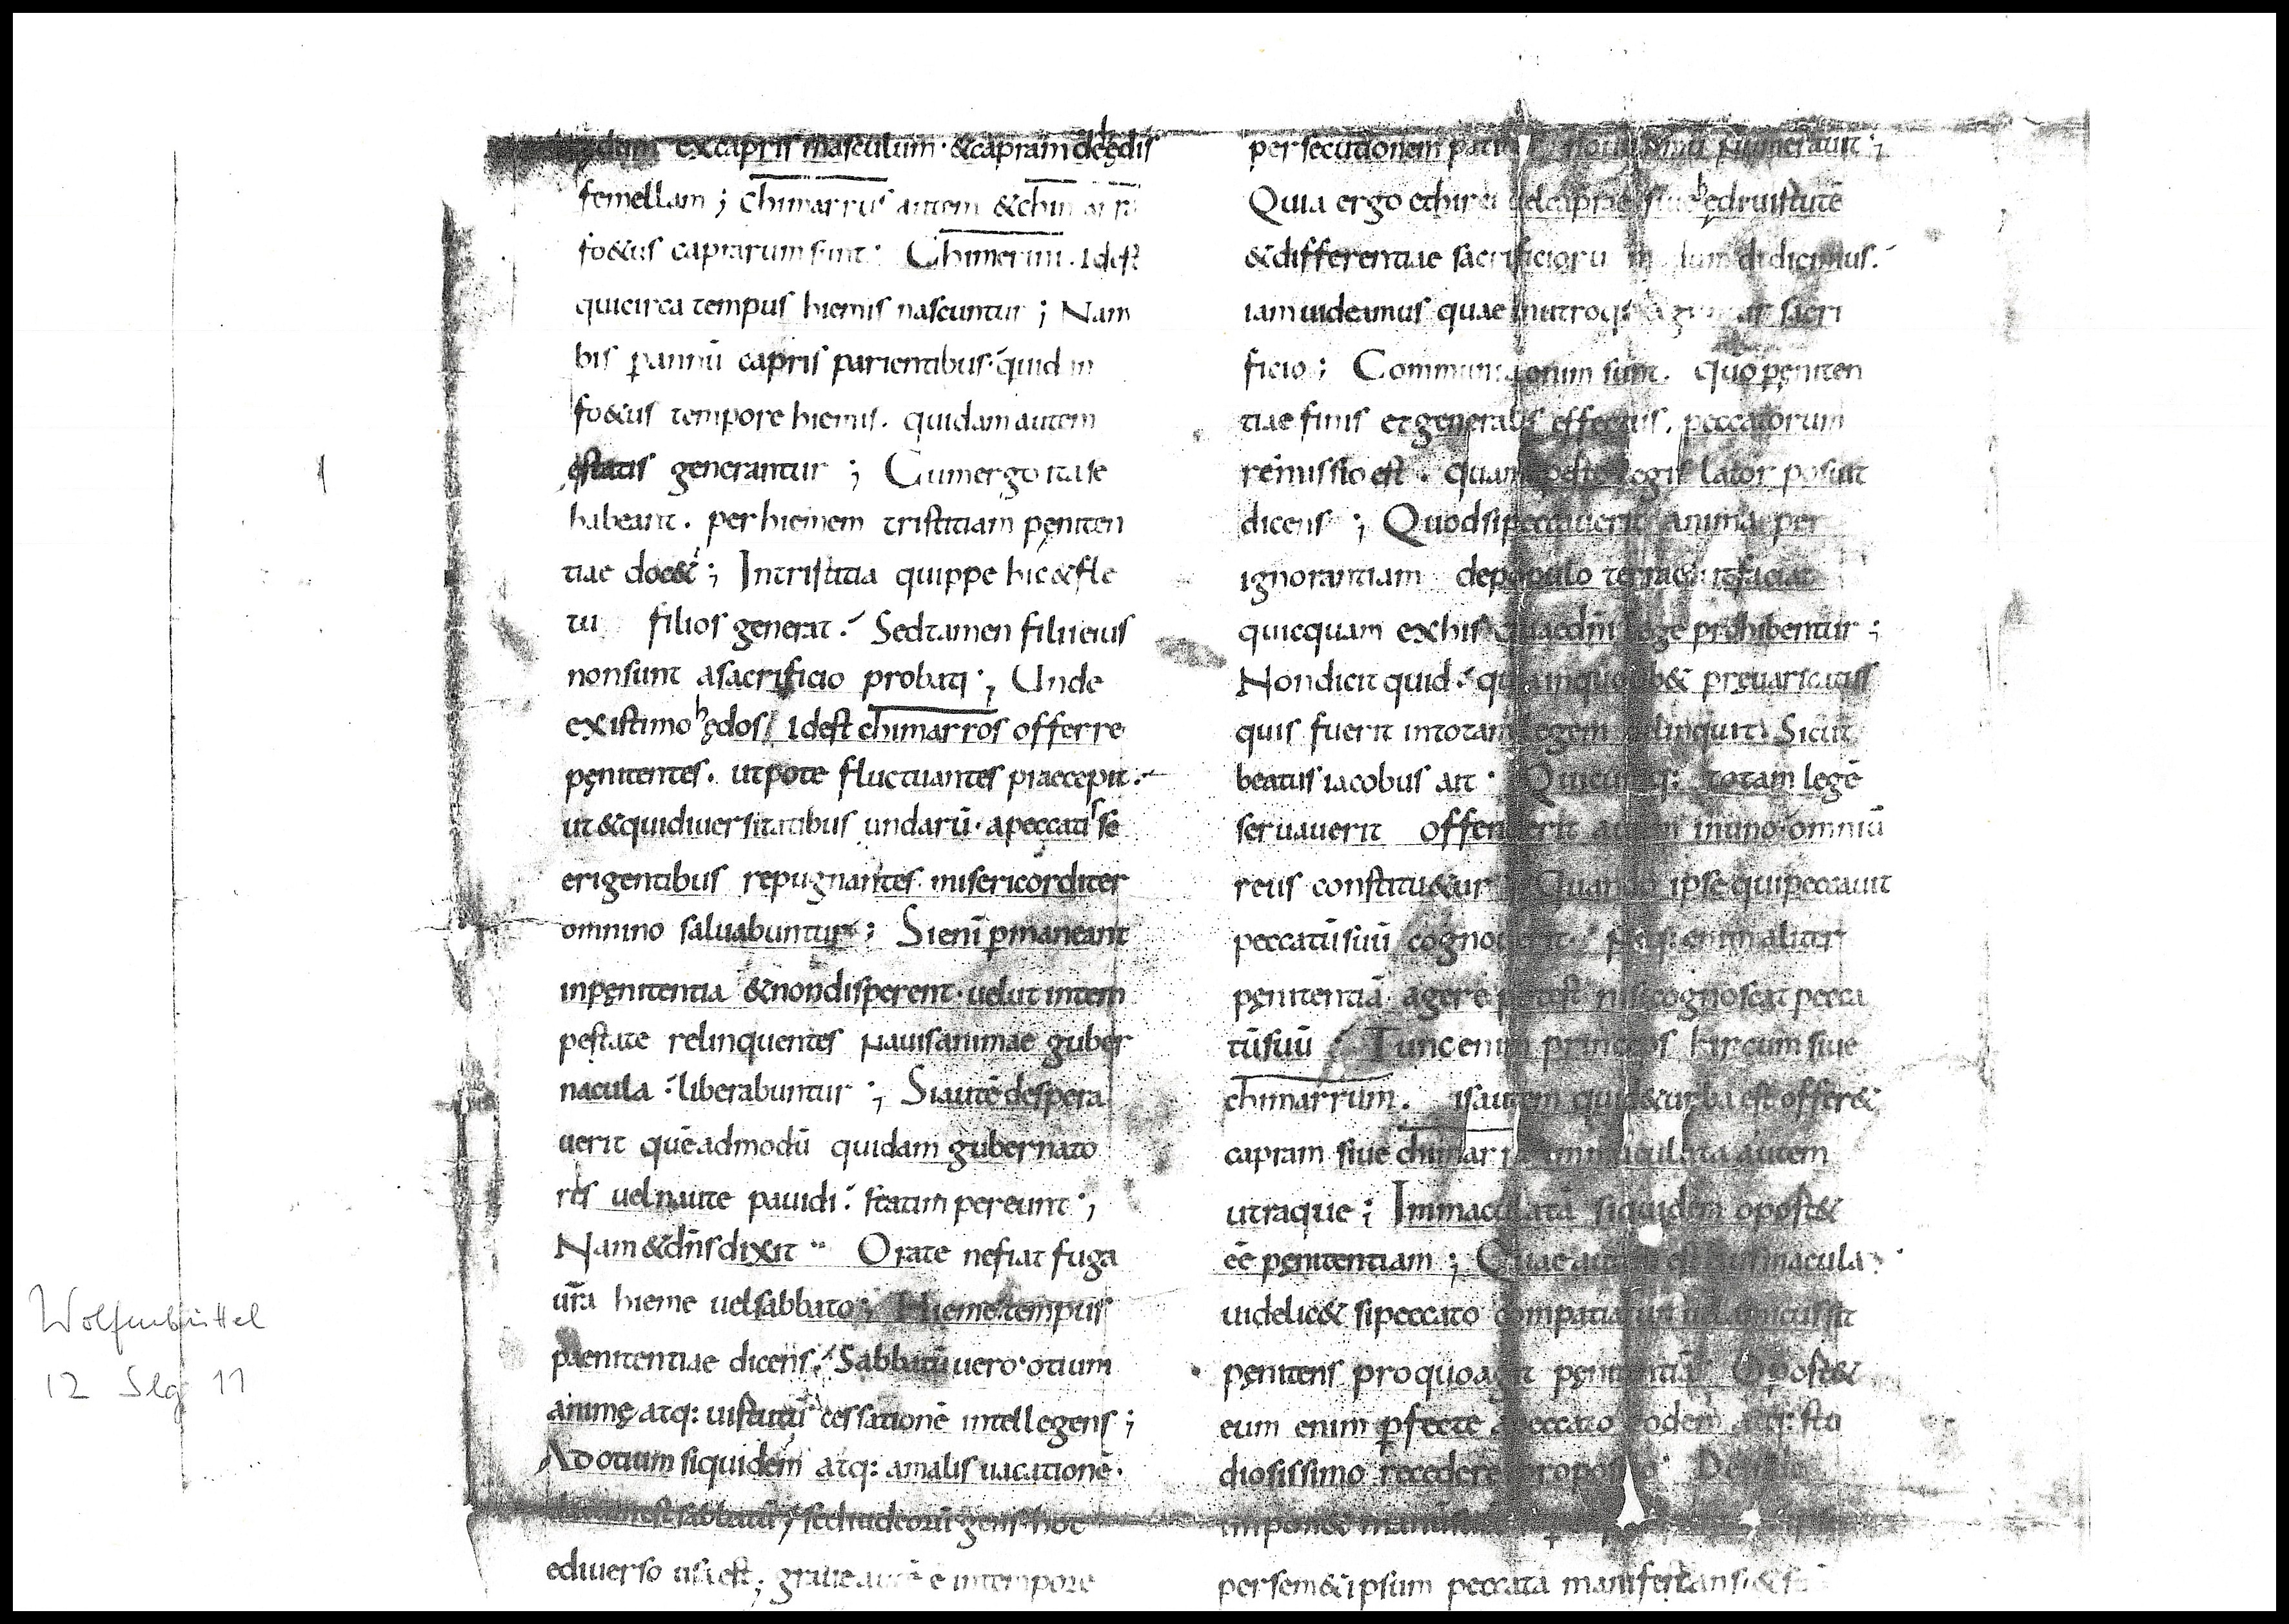 excapris masculum · & capram de hędis
femellam ; chimarrus autem & chim
fo&us caprarum sunt : Chimerini . idest
quicirca tempus hiemis nascuntur ; Nam
bis p̱annū capris parientibus · quid
fo&us tempore hiemis . quidam autem
ęstatis generantur ; Cum ergo ita se
habeant . per hiemem tristitiam pęniten
tiae doc& ; In tristitia quippe hic & fle
tu filios generat : Sed tamen filii eius
non sunt a sacrificio probati ; Unde
existimo hędos idest chimarros offerre
pęnitentes . utpote fluctuantes praecepit :
ut & qui diuersitatibus undarū · a peccatis se
erigentibus repugnantes misericorditer
omnino saluabuntur ; Si enī p̱maneant
in pęnitentia & non disperent · uelut in tem
pestate relinquentes nauis animae guber
nacula : liberabuntur ; Si autē despera
uerit quēadmodū quidam gubernato
res uel naute pauidi : statim pereunt ;
Nam & dn̄s dixit Orate ne fiat fuga
ur̄a hieme uel sabbato ; Hieme tempus
paenitentiae dicens : Sabbatū uero · otium
animę atq: uirtutū cessationē intellegens ;
Ad otium siquidem atq: a malis uacationē ·
sabbatū ; sed iudeorū gens hoc
e diuerso usa est ; graue e in tempore
persecutionem
Quia ergo et hirci uel capre siue hędi uirtutē
& differentiae sacrificiorū didicimus :
iam uideamus quae in utroq: sacri
ficio ; Communia sunt . quō pęniten
tiae finis et generalis effectus . peccatorum
remissio est . quam legis lator posuit
dicens ; Quod si peccauerit anima per
ignorantiam de populo terrae ut faciat
quicquam ex his quae dn̄i lege prohibentur ;
Non dicit quid : quia in quolib& pręuaricatus
quis fuerit in totam legem delinquit Sicut
beatus iacobus ait · Quicumq: totam legē
seruauerit offenderit autem in uno · omniū
reus constitu&ur Quando ipse qui peccauit
peccatū suū cognouerit : Neq: enim aliter
pęnitentiā agere potest nisi cognoscat pecca
tū suū : Tunc enim princeps hircum siue
chimarrum . is autem qui de turba est offer&
capram siue chimarram immaculata autem
utraque ; Immaculatā siquidem oport&
eē pęnitentiam ; Quae autem est macula
uidelic& si peccato compatiatur uel amicus sit
pęnitens pro quo agit pęnitentiā Oport&
eum enim p̱fecte a peccato eodem atq: stu
diosissimo recedere proposito
impon& manū
per sem&ipsum peccata manifestans · &